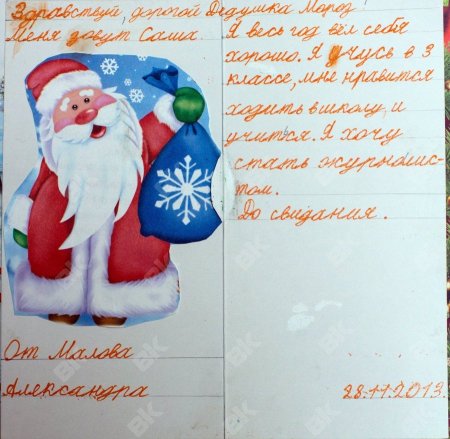 Здравствуй, дорогой Дедушка Мороз!
Меня зовут Саша.
Я весь год вёл себя
хорошо. Я учусь в 3
классе, мне нравится
ходить в школу, и
учится. Я хочу
стать журналис-
том.
До свидания.
От Малова
Александра
28.11.2013.